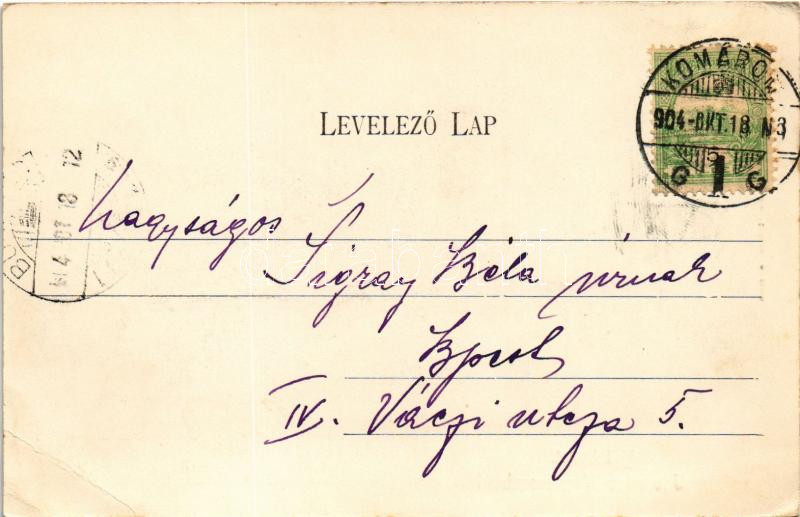 LEVELEZŐ LAP
KOMÁROM
904-OKT.18 N3
G 1 G
Nagyságos
Sigray Béla úrnak
Bpest
IV. Váczi utcza 5.